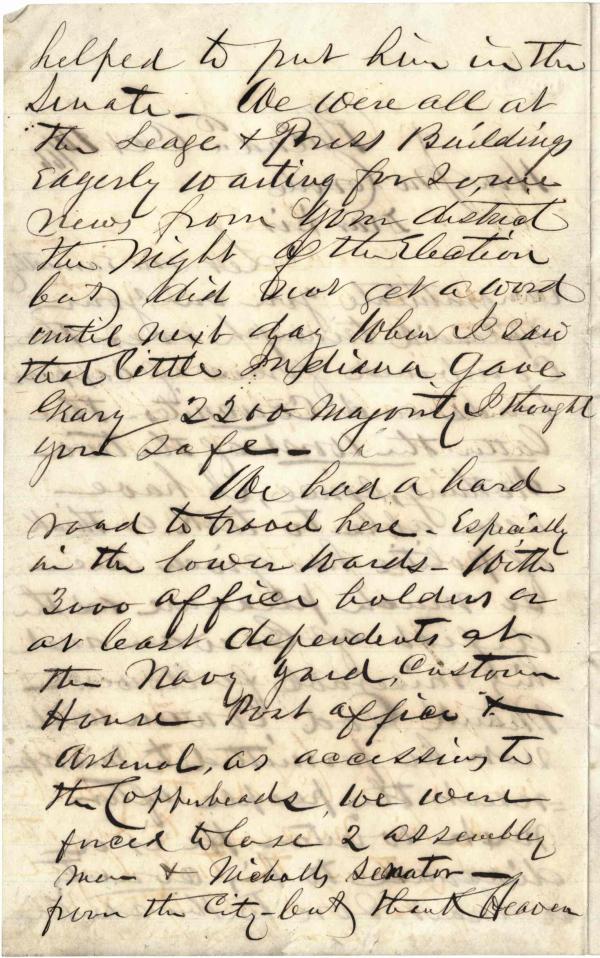 helped to put him in the
Senate - We were all at
the Leage & Press Buildings
Eagerly waiting for some
news from your district
the Night of the Election
but did not get a word
until next day When I saw
that little Indiana gave
Geary 2200 Majority I thought
you safe -
We had a hard
road to travel here - Especially
in the lower Wards - With
3000 office holders or
at least dependents at
the Navy Yard, Custom
House Post office &
Arsenal, as accessions to
the Copperheads, we were
forced to lose 2 assembly
men & Nicholls Senator -
from the City - but thank Heaven